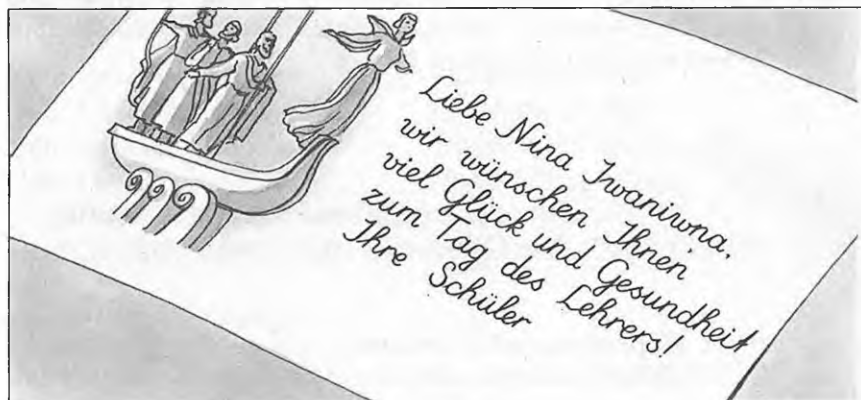 Liebe Nina Iwaniwna,
wir wünschen Ihnen
viel Glück und Gesundheit
zum Tag des Lehrers!
Ihre Schüler